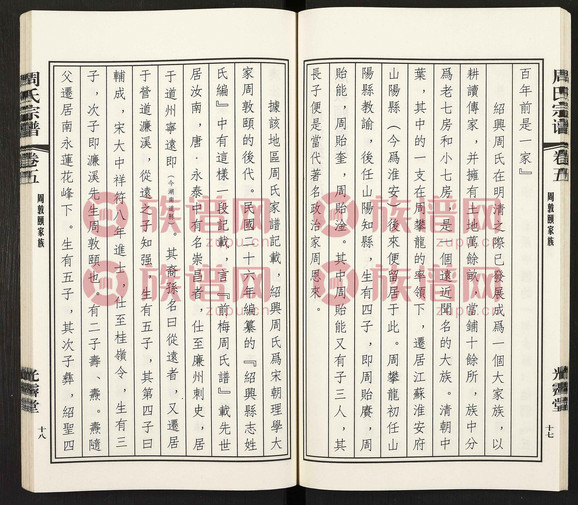 周氏宗谱
卷五
周敦頤家族
光霽堂
十七
百年前是一家』
紹興周氏在明清之際已發展成爲一個大家族，以
耕讀傳家，并擁有土地萬餘畝，當鋪十餘所，族中分
爲老七房和小七房，是一個遠近聞名的大族。清朝中
葉，其中的一支在周攀龍的率領下，遷居江蘇淮安府
山陽縣（今爲淮安）後來便留居于此。周攀龍初任山
陽縣教諭，後任山陽知縣，生有四子，即周貽賡，周
貽能，周貽奎，周貽淦。其中周貽能又有子三人，其
長子便是當代著名政治家周恩來。
據該地區周氏家譜記載，紹興周氏爲宋朝理學大
家周敦頤的後代。民國二十六年編纂的『紹興縣志姓
氏編』中有這樣一段記載，言『前梅周氏譜』載先世
居汝南，唐·永泰中有名崇昌者，仕至廉州刺史，居
于道州寧遠即（今湖廣道縣）其裔孫名曰從遠者，又遷居
于營道濂溪，從遠之子知强，生有五子，其第四子曰
輔成，宋大中祥符八年進士，仕至桂嶺令，生有三
子，次子即濂溪先生周敦頤也，有二子壽、燾。燾隨
父遷居南永蓮花峰下。生有五子，其次子彝，紹聖四
周氏宗谱
卷五
周敦頤家族
光霽堂
十八
族谱网
zupu.cn
族谱网
zupu.cn
族谱网
zupu.cn
族谱网
zupu.cn